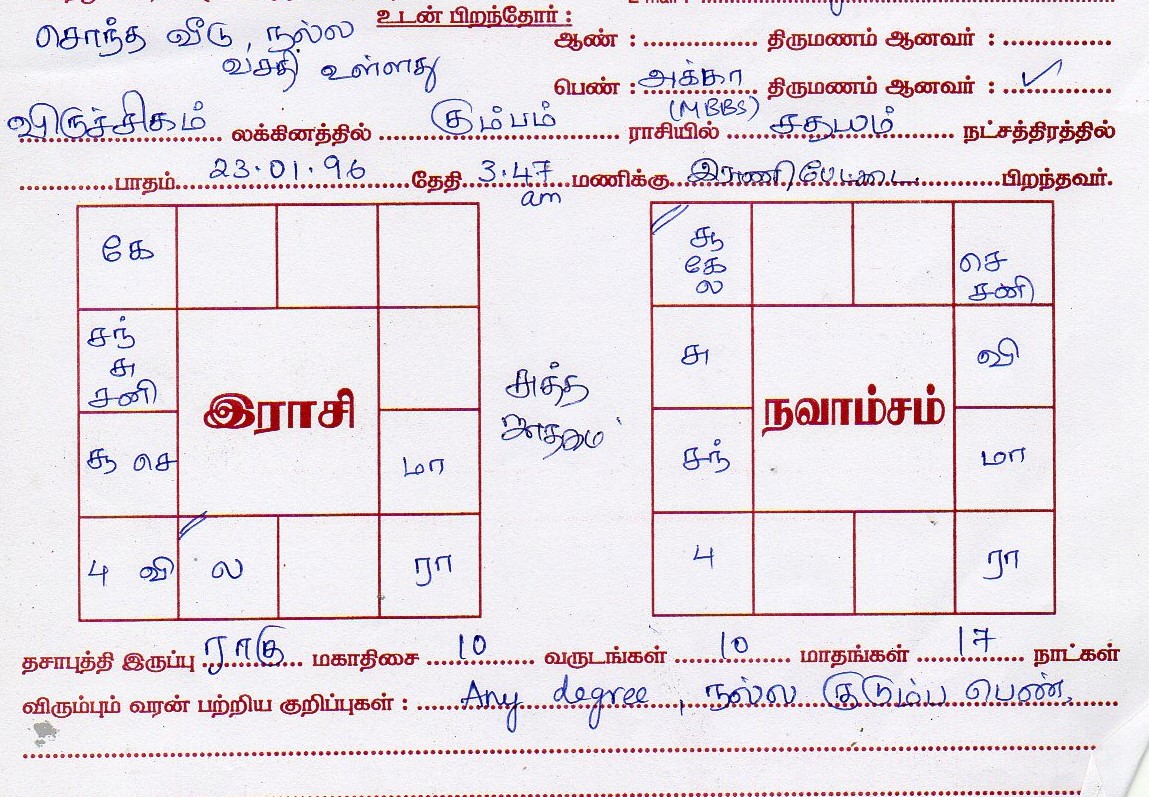 உடன் பிறந்தோர் :
சொந்த வீடு, நல்ல
வசதி உள்ளது
ஆண் : .............. திருமணம் ஆனவர் : ..............
பெண் : அக்கா (MBBS) திருமணம் ஆனவர் : ✓
விருச்சிகம் லக்கினத்தில் கும்பம் ராசியில் சதயம் நட்சத்திரத்தில்
..............பாதம் 23.01.96 தேதி 3.47 am மணிக்கு இராணிபேட்டை பிறந்தவர்.
கே
சந்
சு
சனி
இராசி
சூ செ
மா
4 வி
ல
ரா
சுத்த
சூ
கே
ல
செ
சனி
சு
வி
நவாம்சம்
சந்
மா
4
ரா
தசாபுத்தி இருப்பு ராகு மகாதிசை 10 வருடங்கள் 10 மாதங்கள் 17 நாட்கள்
விரும்பும் வரன் பற்றிய குறிப்புகள் : Any degree, நல்ல குடும்ப பெண்.